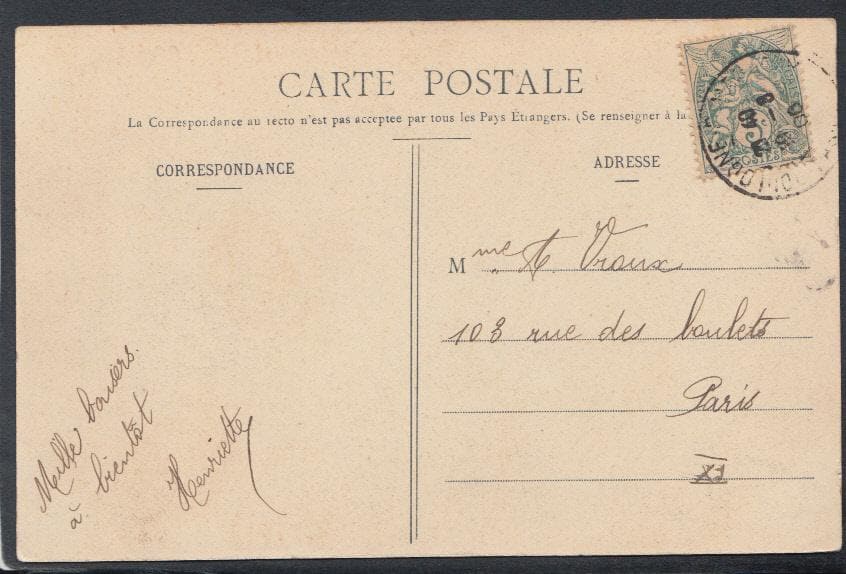 CARTE POSTALE
La Correspondance au recto n'est pas acceptée par tous les Pays Étrangers. (Se renseigner à la
CORRESPONDANCE
ADRESSE
Mme A. Vraux
103 rue des boulets
Paris
XI
Mille baisers.
à bientôt
Henriette
5
POSTES
ORNE